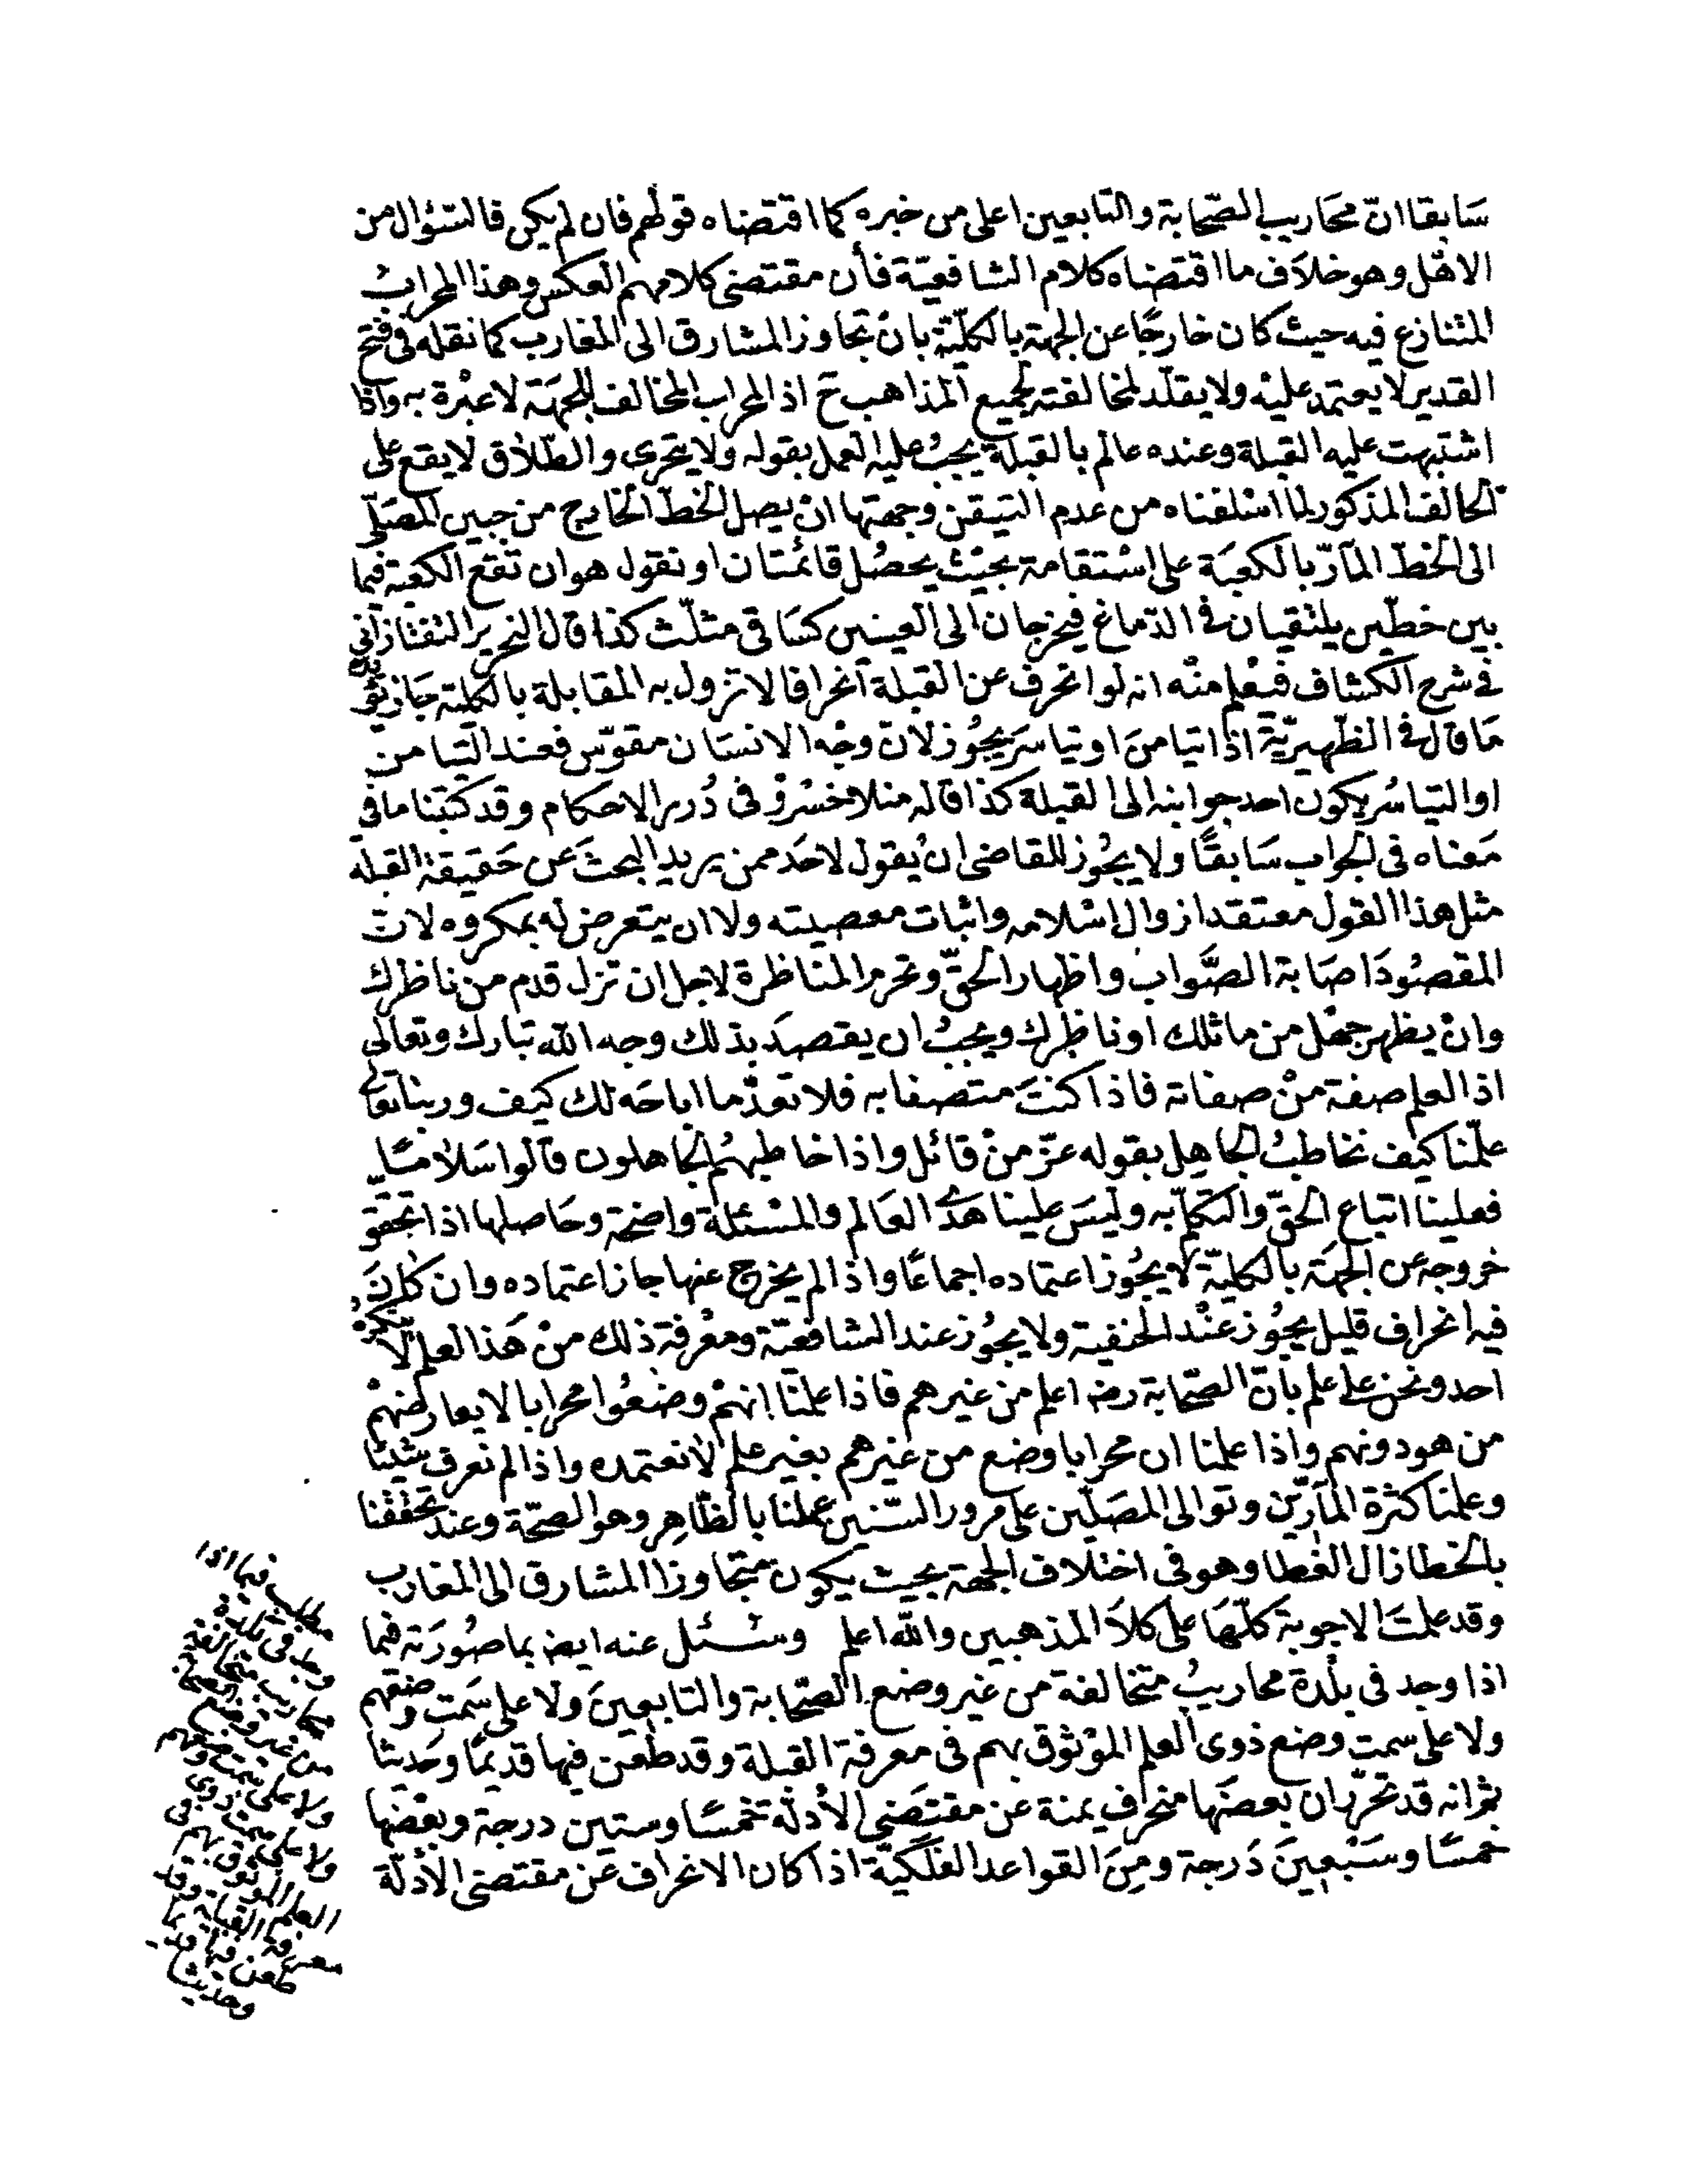 سَابقا انّ محَاريب الصّحابة والتابعين اعلى من خبره كما اقتضاه قولهم فان لم يكن فالسّؤال من
الاهْل وهو خلاَف ما اقتضاه كلام الشافعيّة فأن مقتضى كلامهم العكس وهذا المحرابُ
المتنازع فيه حيث كان خارجًا عن الجهة بالكليّة بانْ تجاوز المشارق الى المغارب كما نقله فى فتح
القدير لا يعتمد عليْه ولا يقلّد لمخالفته لجميع المذاهب ح اذ المحراب المخالف للجهَة لا عبْرة به واذا
اشتبهت عليه القبلة وعنده عالم بالقبلة يجبُ عليه العمل بقوله ولا يتحرى والطّلاق لا يقع على
الحالف المذكور لما اسْلفناه من عدم التيقن وجهتها انْ يصل الخطّ الخارج من جبين المصَلّى
الى الخطّ المآرّ بالكعبَة على اسْتقامة بحيْث يحصُل قائمتان او نقول هو ان تقع الكعبة فيما
بين خطّين يلتقيان فى الدّماغ فيخرجان الى العينين كسَاقى مثلّث كذا قال النحرير التفتازانى
فى شرح الكشاف فيعْلم منْه انه لو انحرف عن القبلة آنحرافا لا تزول به المقابلة بالكلية جَاز يؤيده
مَا قال فى الظّهيريّة اذا تيامنَ او تياسرَ يجُوز لانّ وجْه الانسَان مقوّس فعند التيامن
او التياسُر يكون احد جوانبه الى القبلة كذا قاله منلا خسْروْ فى دُرر الاحكام وقد كتبْنا ما فى
مَعناه فى الجواب سَابقًا ولا يجُوز للقاضى انْ يُقول لاحَد ممن يريد البحثَ عن حَقيقة القبلة
مثل هذا القول معتقدا زوال اسْلامه واثبات معصيته ولا ان يتعرض له بمكروه لانّ
المقصُودَ اصَابة الصَّواب واظهار الحقّ وتحرم المناظرة لاجل ان تزل قدم من ناظرك
وانْ يظهر جهْل من ماثلك او ناظرك ويجبُ ان يقصدَ بذلك وجه الله تبارك وتعالى
اذ العلم صفة منْ صفاته فاذا كنتَ متصفا به فلا تعدّ ما اباحَه لك كيف وربنا تعالى
علّمنا كيْف نخاطبُ الجاهِل بقوله عزّ منْ قائل واذا خاطبهُم الجاهلون قالوا سَلامًا
فعلينا اتباع الحقّ والتكلّم به وليسَ علينا هَدْى العَالم والمسْئلة واضحة وحَاصلها اذا تحقق
خروجه عن الجهَة بالكليّة لا يجُوز اعتماده اجماعًا واذا لم يخرج عنها جاز اعتماده وان كان
فيه انحراف قليل يجُوز عنْد الحنفية ولا يجُوز عند الشافعيّة ومعْرفة ذلك منْ هَذ العلم لا ينكرهُ
احد ونحن على علم بانّ الصّحابة رضه اعلم من غيرهم فاذا علمْنا انهمْ وضَعُوا محرابا لا يعارضهْم
من هو دونهم واذا علمنا ان محرابا وضع من غيْرهم بغير علم لا نعتمده واذا لم نعرف شيئا
وعلمنا كثرة المآرّين وتوالى المصَلّين على مرور السّنين عملنا بالظّاهِر وهو الصحّة وعند تحققنا
بالخطا زال الغطا وهو فى اختلاف الجهة بحيث يكون متجاوزا المشارق الى المغارب
وقد علمتَ الاجوبة كلّهَا على كلاَ المذهبين والله اعلم وسُئل عنه ايضا بما صُورَته فيما
اذا وجد فى بلْدة محاريبُ متخالفة من غير وضع الصّحابة والتابعينَ ولا على سَمت وضعهم
ولا على سمت وضع ذوى العلم الموْثوق بهم فى معرفة القبلة وقد طُعن فيها قديمًا وحَديثا
ثم انه قد تحرّر ان بعضَها منحرف يمنة عن مقتضَى الأدلّة خمسًا وستين درجة وبعْضها
خمسًا وسَبْعينَ دَرجة ومِنَ القواعد الفلَكيّة اذا كان الانحراف عَن مقتضى الأدلّة
مطلب فيما اذا
وجد فى بلدة
محاريب متخالفة
من غير وضع الصحابة
ولا على سمت وضعهم
ولا على سمت ذوى
العلم الموثوق بهم فى
معرفة القبلة وقد
طعن فيها قديما
وحديثا